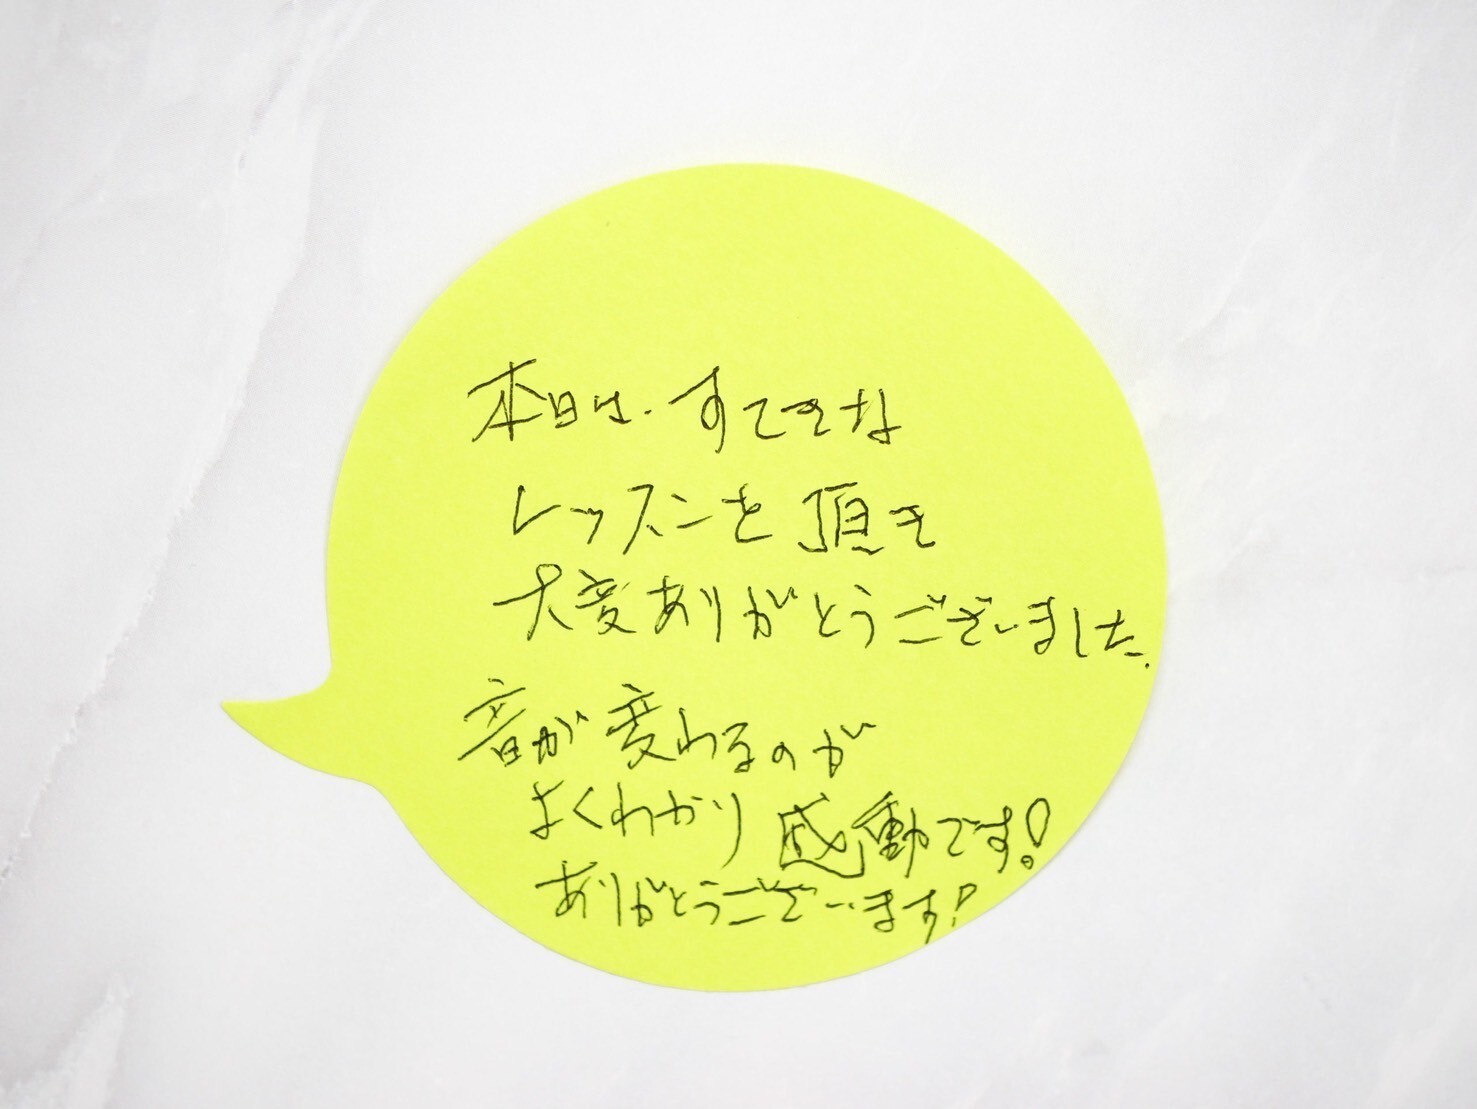 本日は、すてきな
レッスンを頂き
大変ありがとうございました.
音が変わるのが
よくわかり感動です!
ありがとうございます!